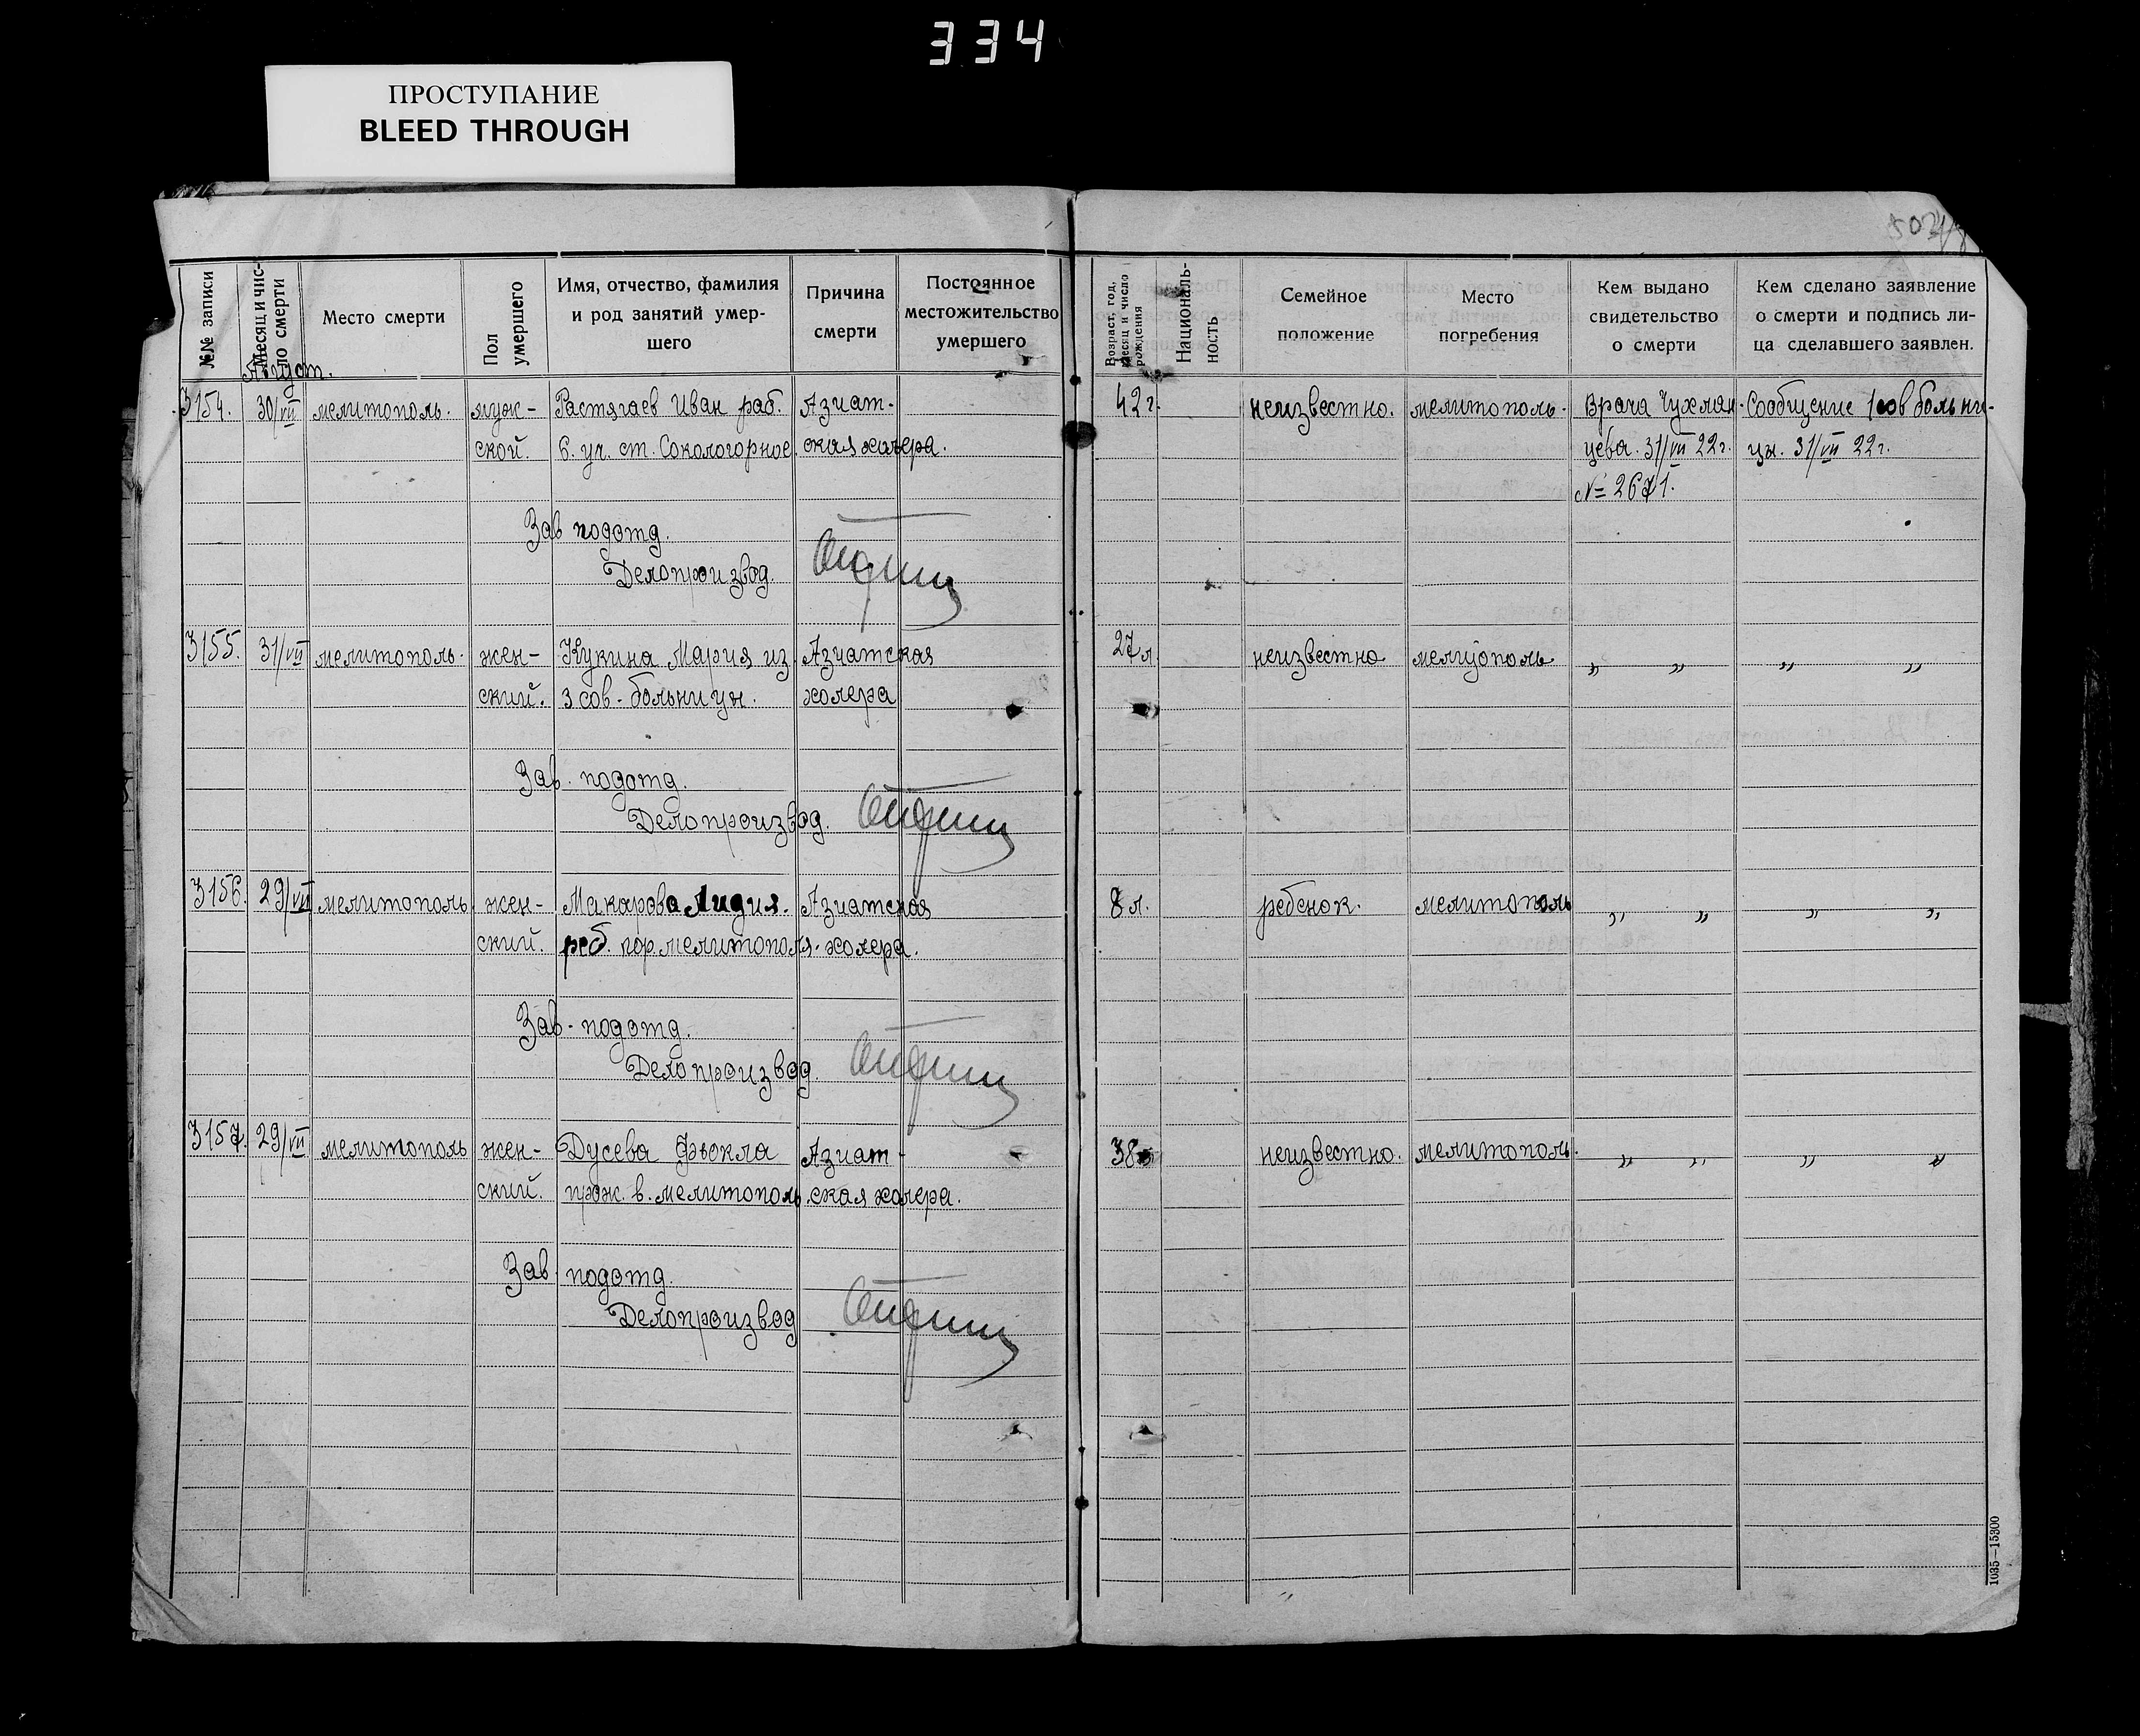 334
ПРОСТУПАНИЕ
BLEED THROUGH
№№ записи
Месяц и число смерти
Место смерти
Пол умершего
Имя, отчество, фамилия и род занятий умершего
Причина смерти
Постоянное местожительство умершего
Возраст, год, месяц и число рождения
Националь-ность
Семейное положение
Место погребения
Кем выдано свидетельство о смерти
Кем сделано заявление о смерти и подпись ли-ца сделавшего заявлен.
Август.
3154. 30/VII мелитополь. муж- Растягаев Иван раб. Азиат- 42 г. неизвестно. мелитополь. Врача Чухман- Сообщение 1 сов больни-
ской. 6. уч. ст. Сокологорное. ская холера. цева. 31/VII 22 г. цы. 31/VII 22 г.
№ 2671.
Зав подотд.
Делопроизвод.
3155. 31/VII мелитополь. жен- Кукина Мария из Азиатская 27 л. неизвестно мелитополь „ „ „ „
ский. 3 сов. больницы. холера
Зав. подотд.
Делопроизвод.
3156. 29/VII мелитополь жен- Макарова Лидия. Азиатская 8 л. ребенок. мелитополь „ „ „ „
ский. реб. гор. мелитополя. холера.
Зав. подотд.
Делопроизвод.
3157. 29/VII мелитополь жен- Дусева Фекла Азиат- 38 неизвестно. мелитополь. „ „ „ „
ский. прож. в. мелитополь. ская холера.
Зав. подотд.
Делопроизвод
1035—15300